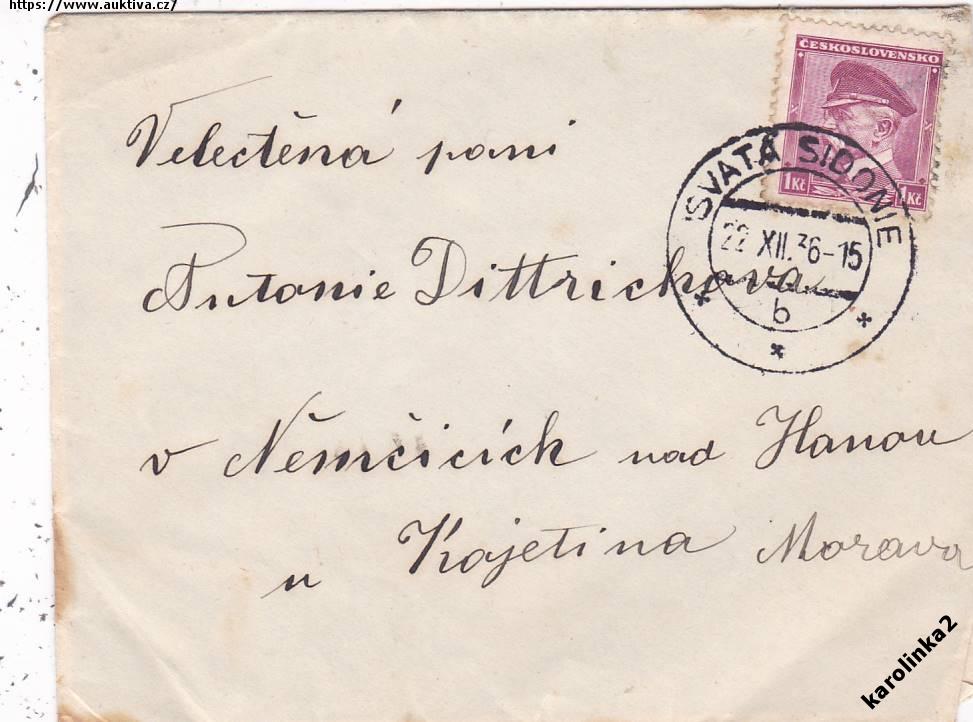 https://www.auktiva.cz/
ČESKOSLOVENSKO
1Kč 1Kč
SVATÁ SIDONIE
22 XII. 36-15
b
Velectěná paní
Antonie Dittrichova
v Němčicích nad Hanou
u Kojetina Morava
karolinka2